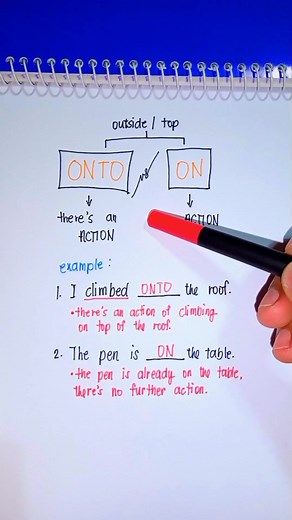 outside / top
ONTO vs ON
there's an
ACTION
ACTION
example:
1. I climbed ONTO the roof.
• there's an action of climbing
on top of the roof.
2. The pen is ON the table.
• the pen is already on the table,
there's no further action.